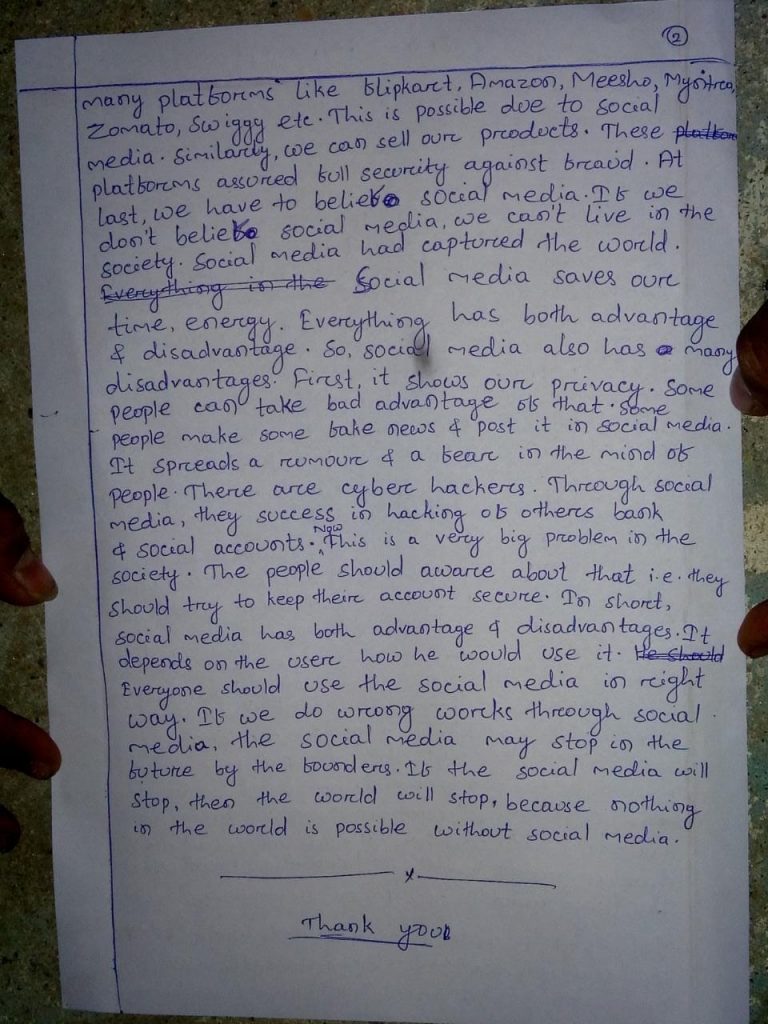 2
many platforms like flipkart, Amazon, Meesho, Myntra,
Zomato, Swiggy etc. This is possible due to social
media. Similarly, we can sell our products. These platfom
platforms assured full security against fraud. At
last, we have to believe social media. If we
don't believe social media, we can't live in the
society. Social media had captured the world.
Everything in the Social media saves our
time, energy. Everything has both advantage
& disadvantage. So, social media also has a many
disadvantages. First, it shows our privacy. Some
people can take bad advantage of that. Some
people make some fake news & post it in social media.
It spreads a rumour & a fear in the mind of
people. There are cyber hackers. Through social
media, they success in hacking of others bank
& social accounts. Now This is a very big problem in the
society. The people should aware about that i.e. they
should try to keep their account secure. In short,
social media has both advantage & disadvantages. It
depends on the user how he would use it. He should
Everyone should use the social media in right
way. If we do wrong works through social
media, the social media may stop in the
future by the founders. If the social media will
stop, then the world will stop, because nothing
in the world is possible without social media.
x
Thank you